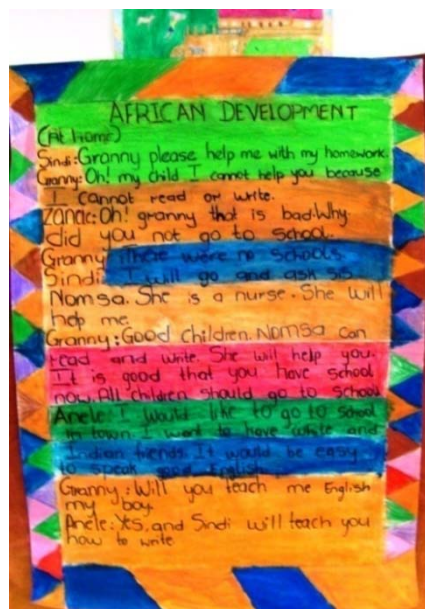 AFRICAN DEVELOPMENT
(At home)
Sindi: Granny please help me with my homework.
Granny: Oh! my child I cannot help you because
I cannot read or write.
Zanac: Oh! granny that is bad. Why
did you not go to school.
Granny: There were no schools.
Sindi: I will go and ask sis
Nomsa. She is a nurse. She will
help me.
Granny: Good children. Nomsa can
read and write. She will help you.
It is good that you have school
now. All children should go to school
Anele: I would like to go to school
in town. I want to have white and
Indian friends. It would be easy
to speak good English.
Granny: Will you teach me English
my boy.
Anele: Yes, and Sindi will teach you
how to write.